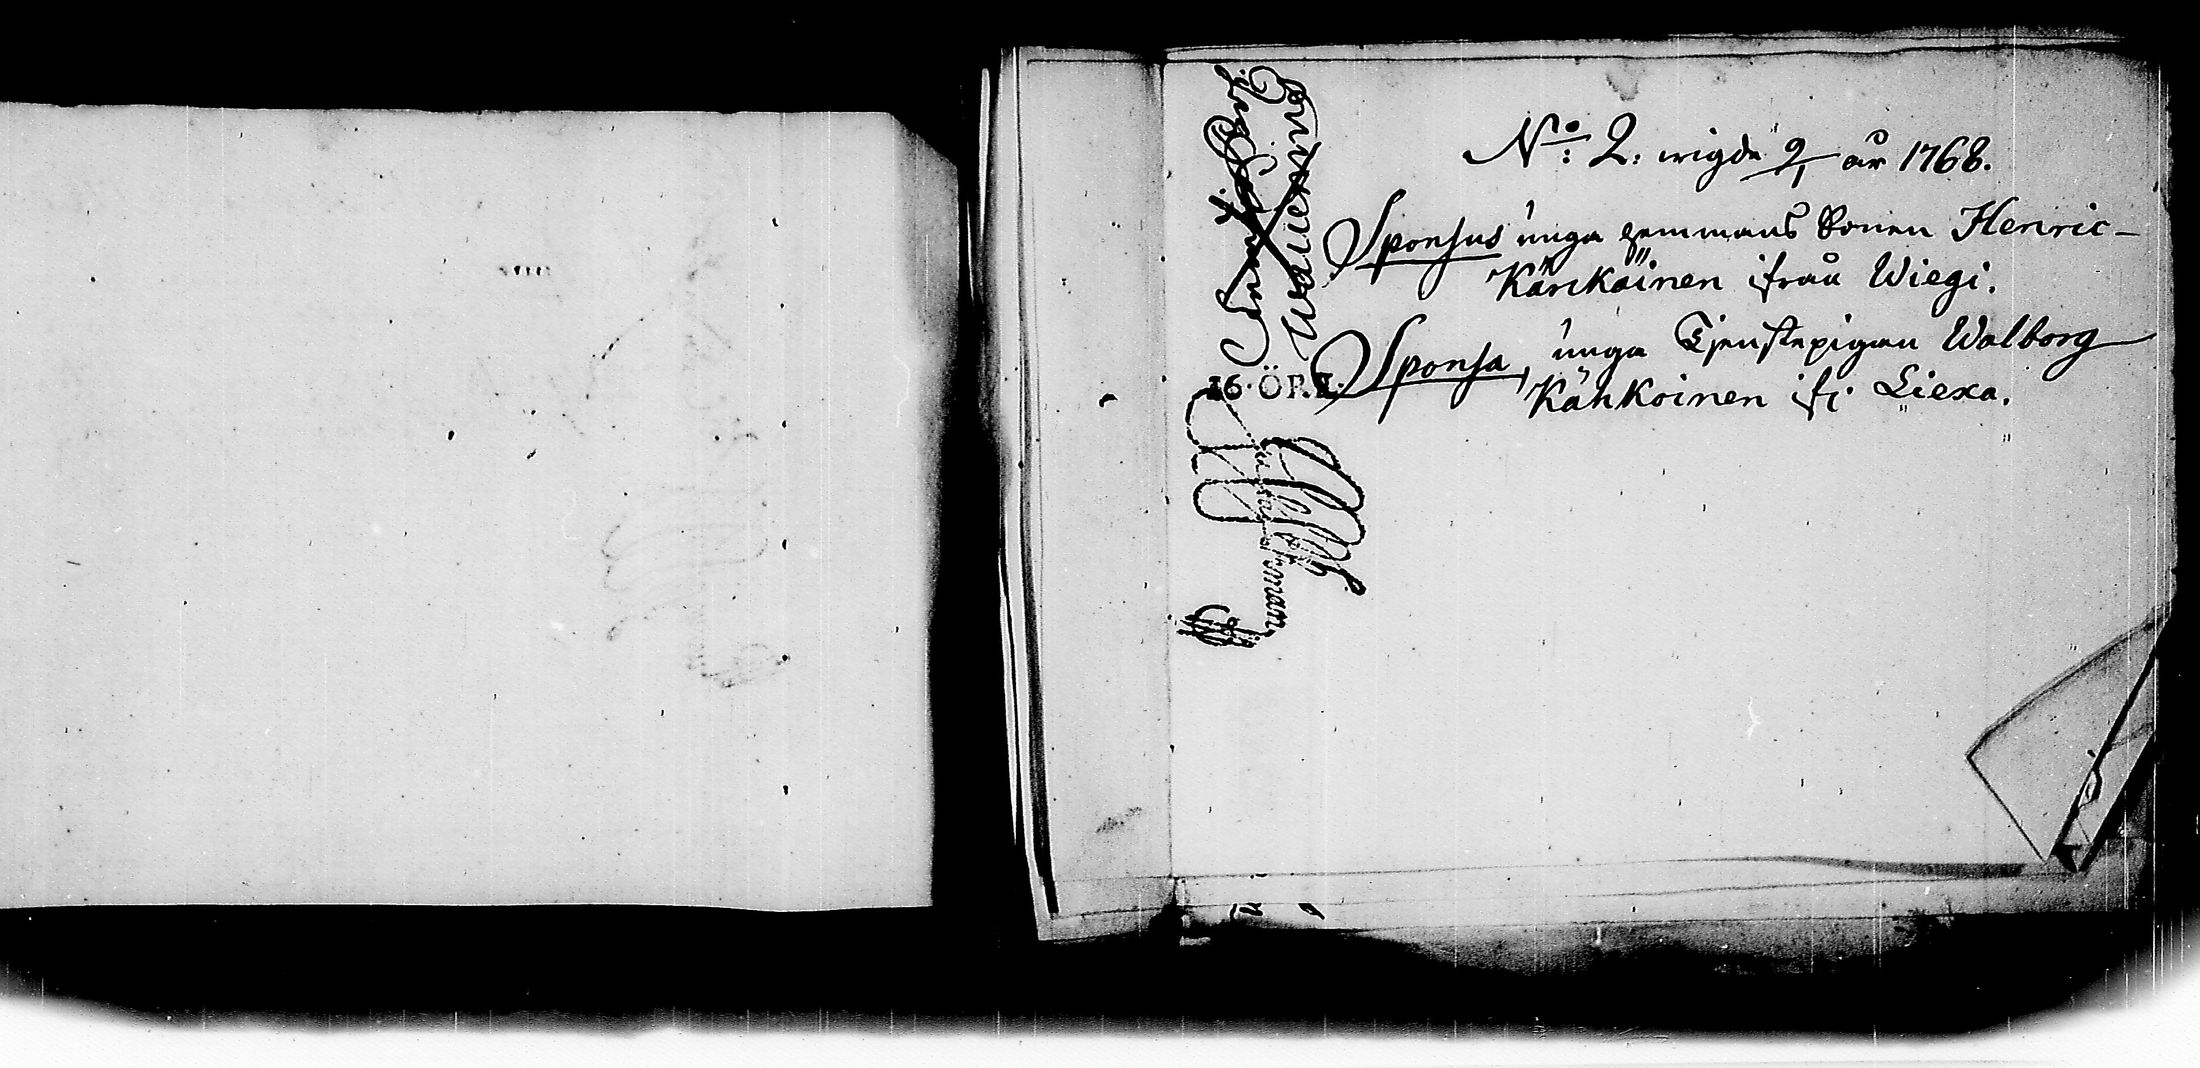 No: 2: wigde 9/1 år 1768.
Sponsus unga hemmans Sonen Henric
Kärikäinen ifrån Wiegi.
Sponsa, unga Tjenstepigan Walborg
Kähkoinen ifr Liexa.
16. ÖR.